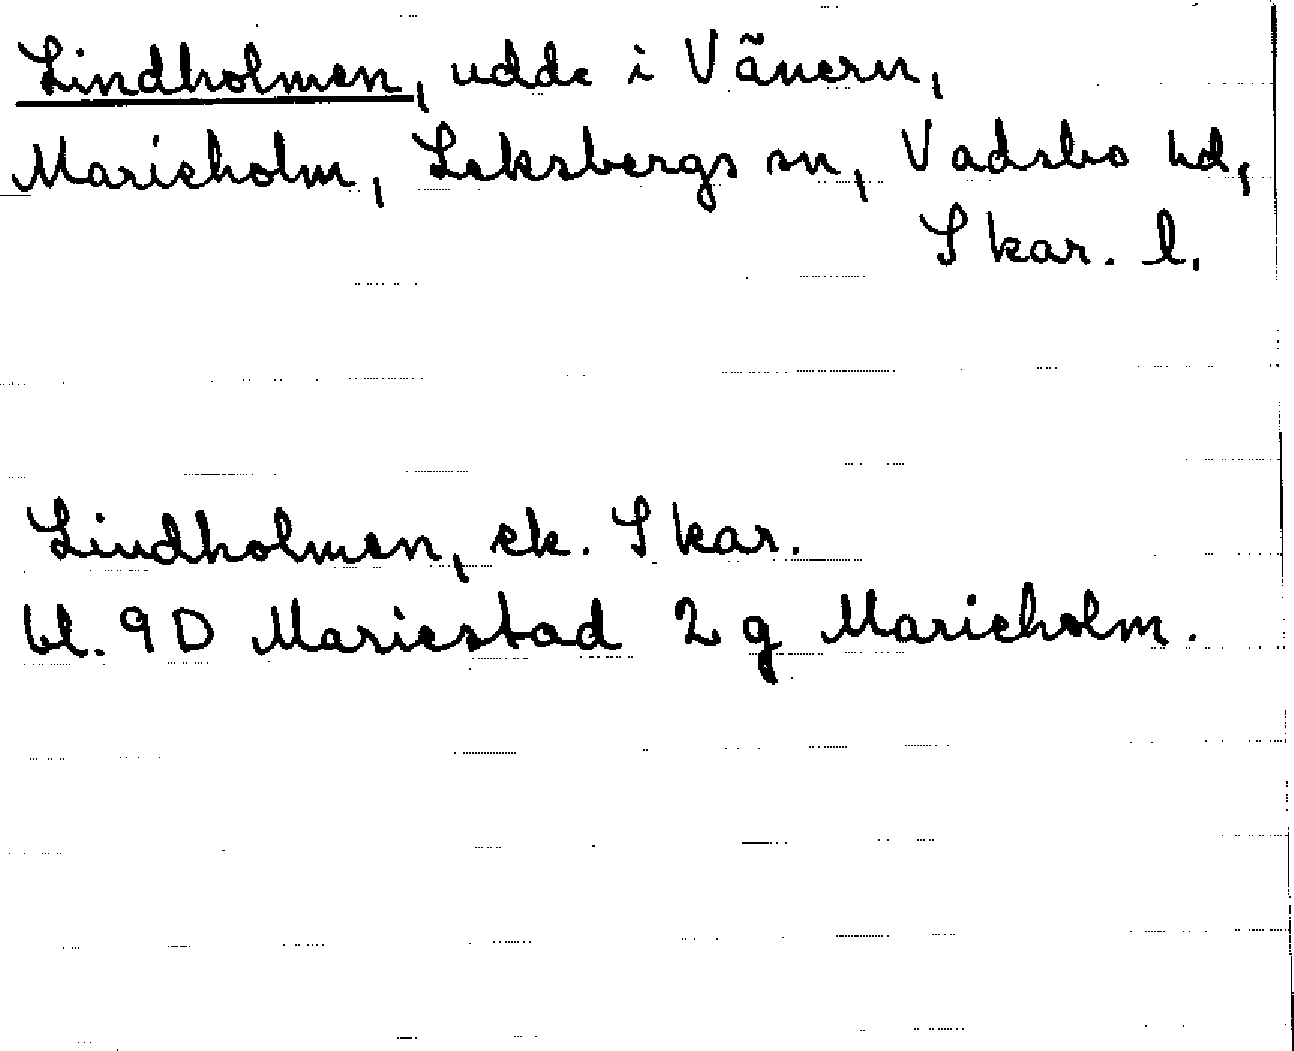 Lindholmen, udde i Vänern,
Marieholm, Leksbergs sn, Vadsbo hd,
Skar. l.
Lindholmen, ek. Skar.
bl. 9D Mariestad 2g Marieholm.